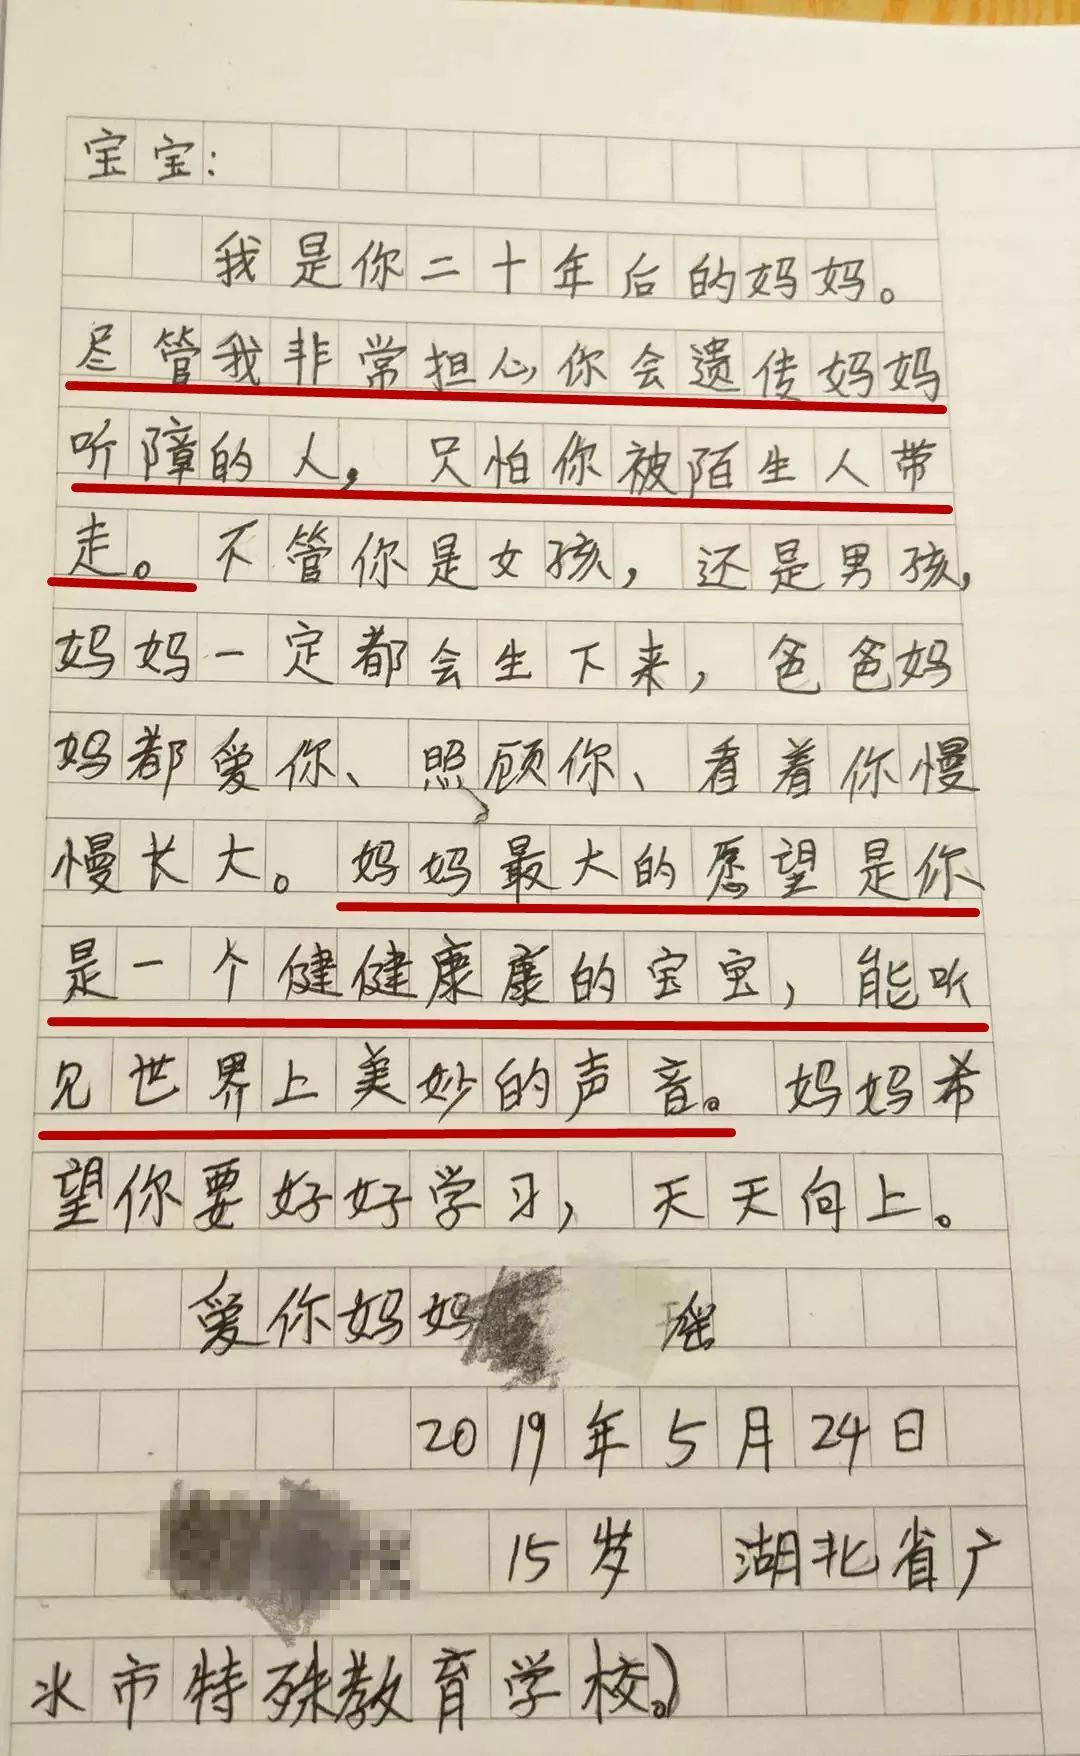 宝宝：
我是你二十年后的妈妈。
尽管我非常担心你会遗传妈妈
听障的人，只怕你被陌生人带
走。不管你是女孩，还是男孩，
妈妈一定都会生下来，爸爸妈
妈都爱你、照顾你、看着你慢
慢长大。妈妈最大的愿望是你
是一个健健康康的宝宝，能听
见世界上美妙的声音。妈妈希
望你要好好学习，天天向上。
爱你妈妈 瑶
2019年5月24日
15岁 湖北省广
水市特殊教育学校。）